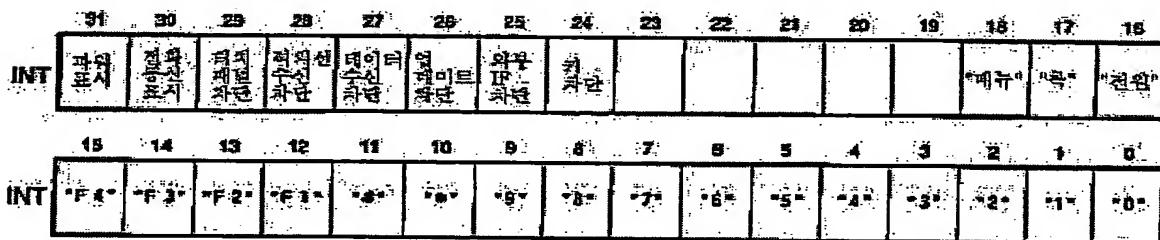 31 30 29 28 27 26 25 24 23 22 21 20 19 18 17 16
INT
파워 표시
터치 패널 차단
적외선 수신 차단
데이터 수신 차단
외부 IF 차단
키 차단
"메뉴" "전원"
15 14 13 12 11 10 9 8 7 6 5 4 3 2 1 0
INT "F4" "F3" "F2" "F1" "#" "*" "9" "8" "7" "6" "5" "4" "3" "2" "1" "0"